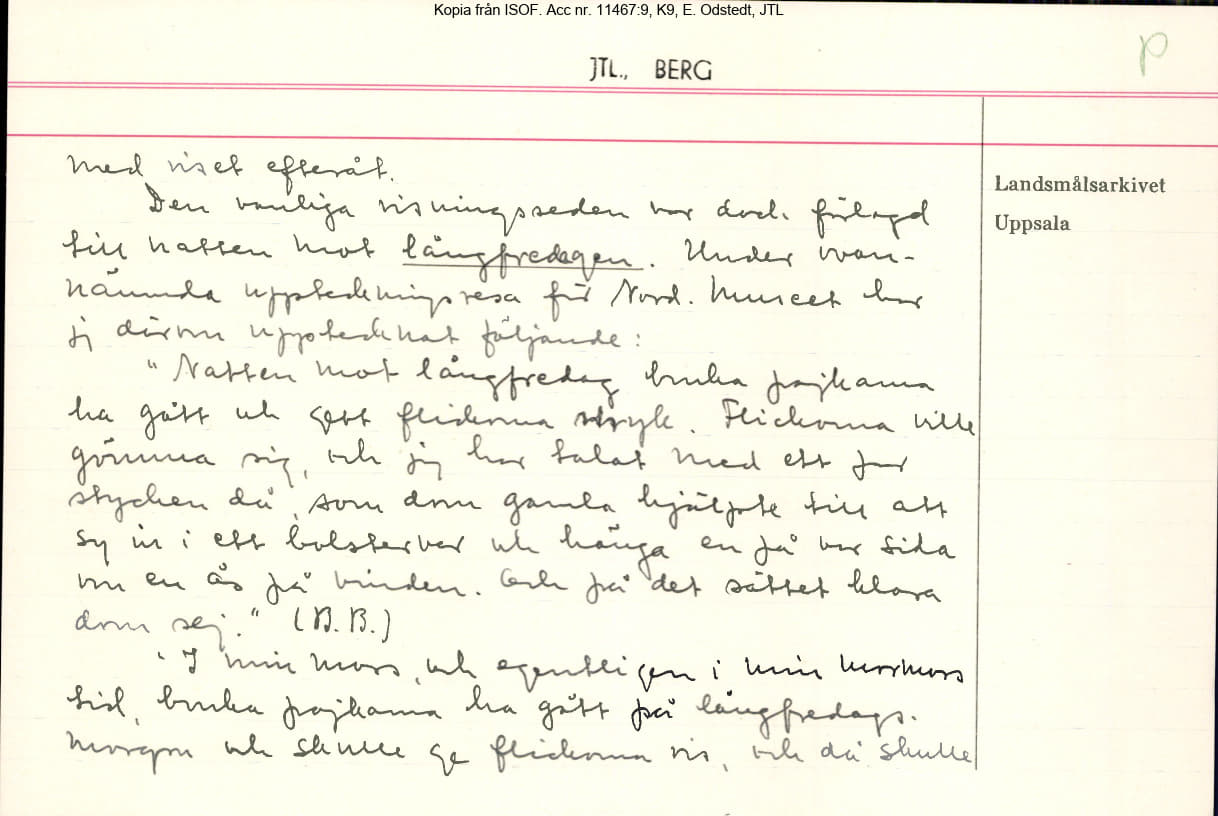 Kopia från ISOF. Acc nr. 11467:9, K9, E. Odstedt, JTL
JTL., BERG
p
med riset efteråt.
Den vanliga risningsseden var dock förlagd
till natten mot långfredagen. Under ovan-
nämnda uppteckningsresa för Nord. Museet har
jag därom upptecknat följande:
"Natten mot långfredag bruka pojkarna
ha gått och gett flickorna stryk. Flickorna ville
gömma sig, och jag har talat med ett par
stycken då, som dom gamla hjälpte till att
sy in i ett bolstervar och hänga en på var sida
om en ås på vinden. Och på det sättet klara
dom sej." (B.B.)
"I min mors, och egentligen i min mormors
tid, bruka pojkarna ha gått på långfredags-
morgon och skulle ge flickorna ris, och då skulle
Landsmålsarkivet
Uppsala